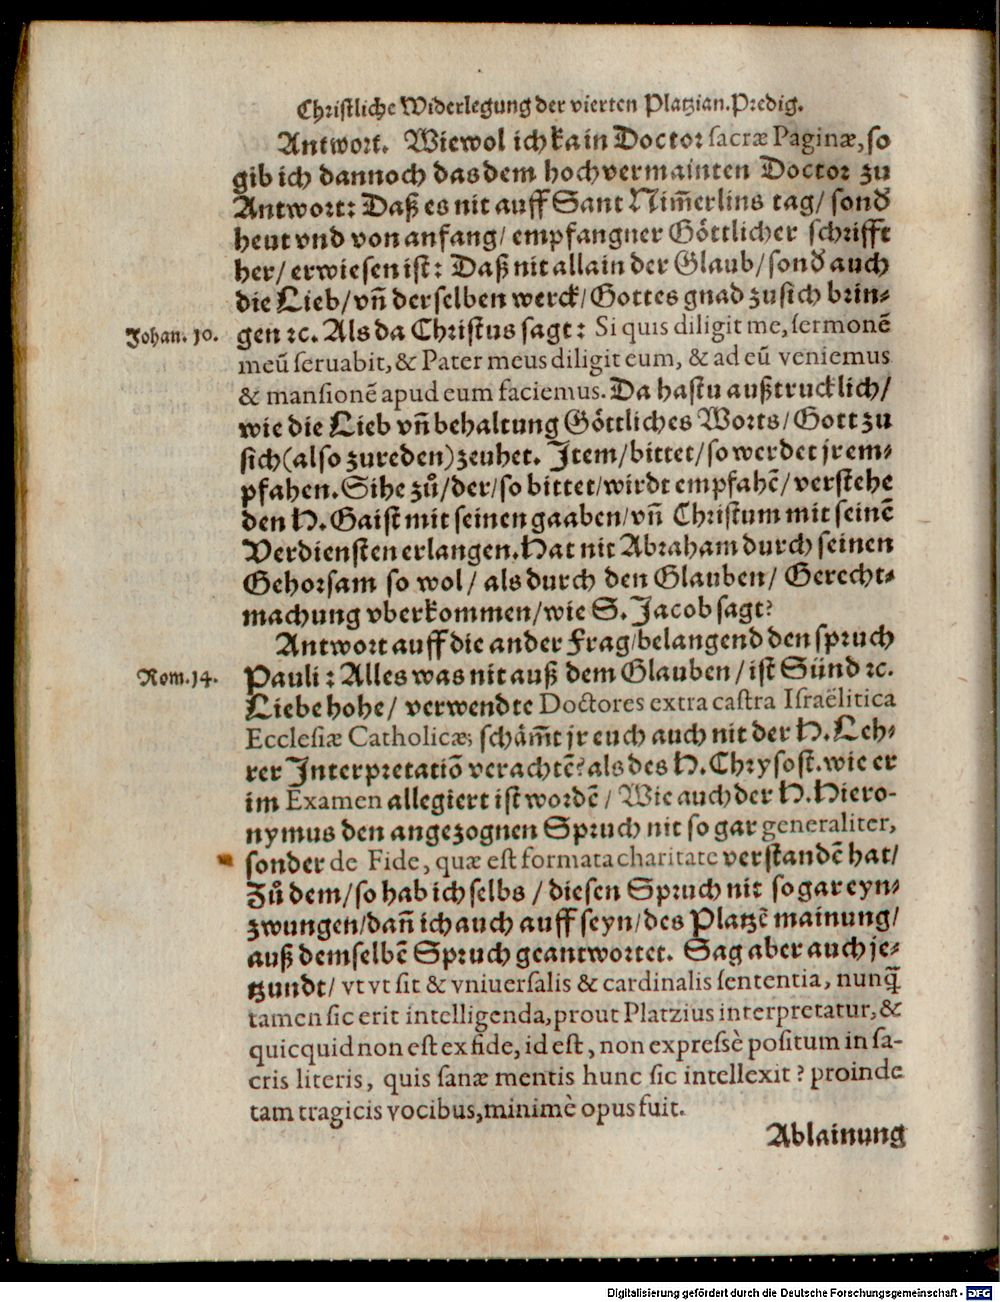 Christliche Widerlegung der vierten Platzian. Predig.
Antwort. Wiewol ich kain Doctor sacræ Paginæ, so
gib ich dannoch das dem hochvermainten Doctor zu
Antwort: Daß es nit auff Sant Nim̃erlins tag/ sond̕
heut vnd von anfang/ empfangner Göttlicher schrifft
her/ erwiesen ist: Daß nit allain der Glaub/ sond̕ auch
die Lieb/ vñ derselben werck/ Gottes gnad zu sich brin-
Johan. 10. gen ꝛc. Als da Christus sagt: Si quis diligit me, sermonẽ
meũ seruabit, & Pater meus diligit eum, & ad eũ veniemus
& mansionẽ apud eum faciemus. Da hastu außtrucklich/
wie die Lieb vñ behaltung Göttliches Worts/ Gott zu
sich (also zureden) zeuhet. Item/ bittet/ so werdet jr em-
pfahen. Sihe zů/ der/ so bittet/ wirdt empfahẽ/ verstehe
den H. Gaist mit seinen gaaben/ vñ Christum mit seinẽ
Verdiensten erlangen. Hat nit Abraham durch seinen
Gehorsam so wol/ als durch den Glauben/ Gerecht-
machung vberkommen/ wie S. Jacob sagt?
Antwort auff die ander Frag/ belangend den spruch
Rom. 14. Pauli: Alles was nit auß dem Glauben/ ist Sünd ꝛc.
Liebe hohe/ verwendte Doctores extra castra Israëlitica
Ecclesiæ Catholicæ; schäm̃t jr euch auch nit der H. Leh-
rer Interpretatiõ verachtẽ? als des H. Chrysost. wie er
im Examen allegiert ist wordẽ/ Wie auch der H. Hiero-
nymus den angezognen Spruch nit so gar generaliter,
sonder de Fide, quæ est formata charitate verstandẽ hat/
Zů dem/ so hab ich selbs/ diesen Spruch nit so gar eyn-
zwungen/ dañ ich auch auff seyn/ des Platzẽ mainung/
auß demselbẽ Spruch geantwortet. Sag aber auch je-
tzundt/ vt vt sit & vniuersalis & cardinalis sententia, nunq̃
tamen sic erit intelligenda, prout Platzius interpretatur, &
quicquid non est ex fide, id est, non expressè positum in sa-
cris literis, quis sanæ mentis hunc sic intellexit? proinde
tam tragicis vocibus, minimè opus fuit.
Ablainung
Digitalisierung gefördert durch die Deutsche Forschungsgemeinschaft - DFG